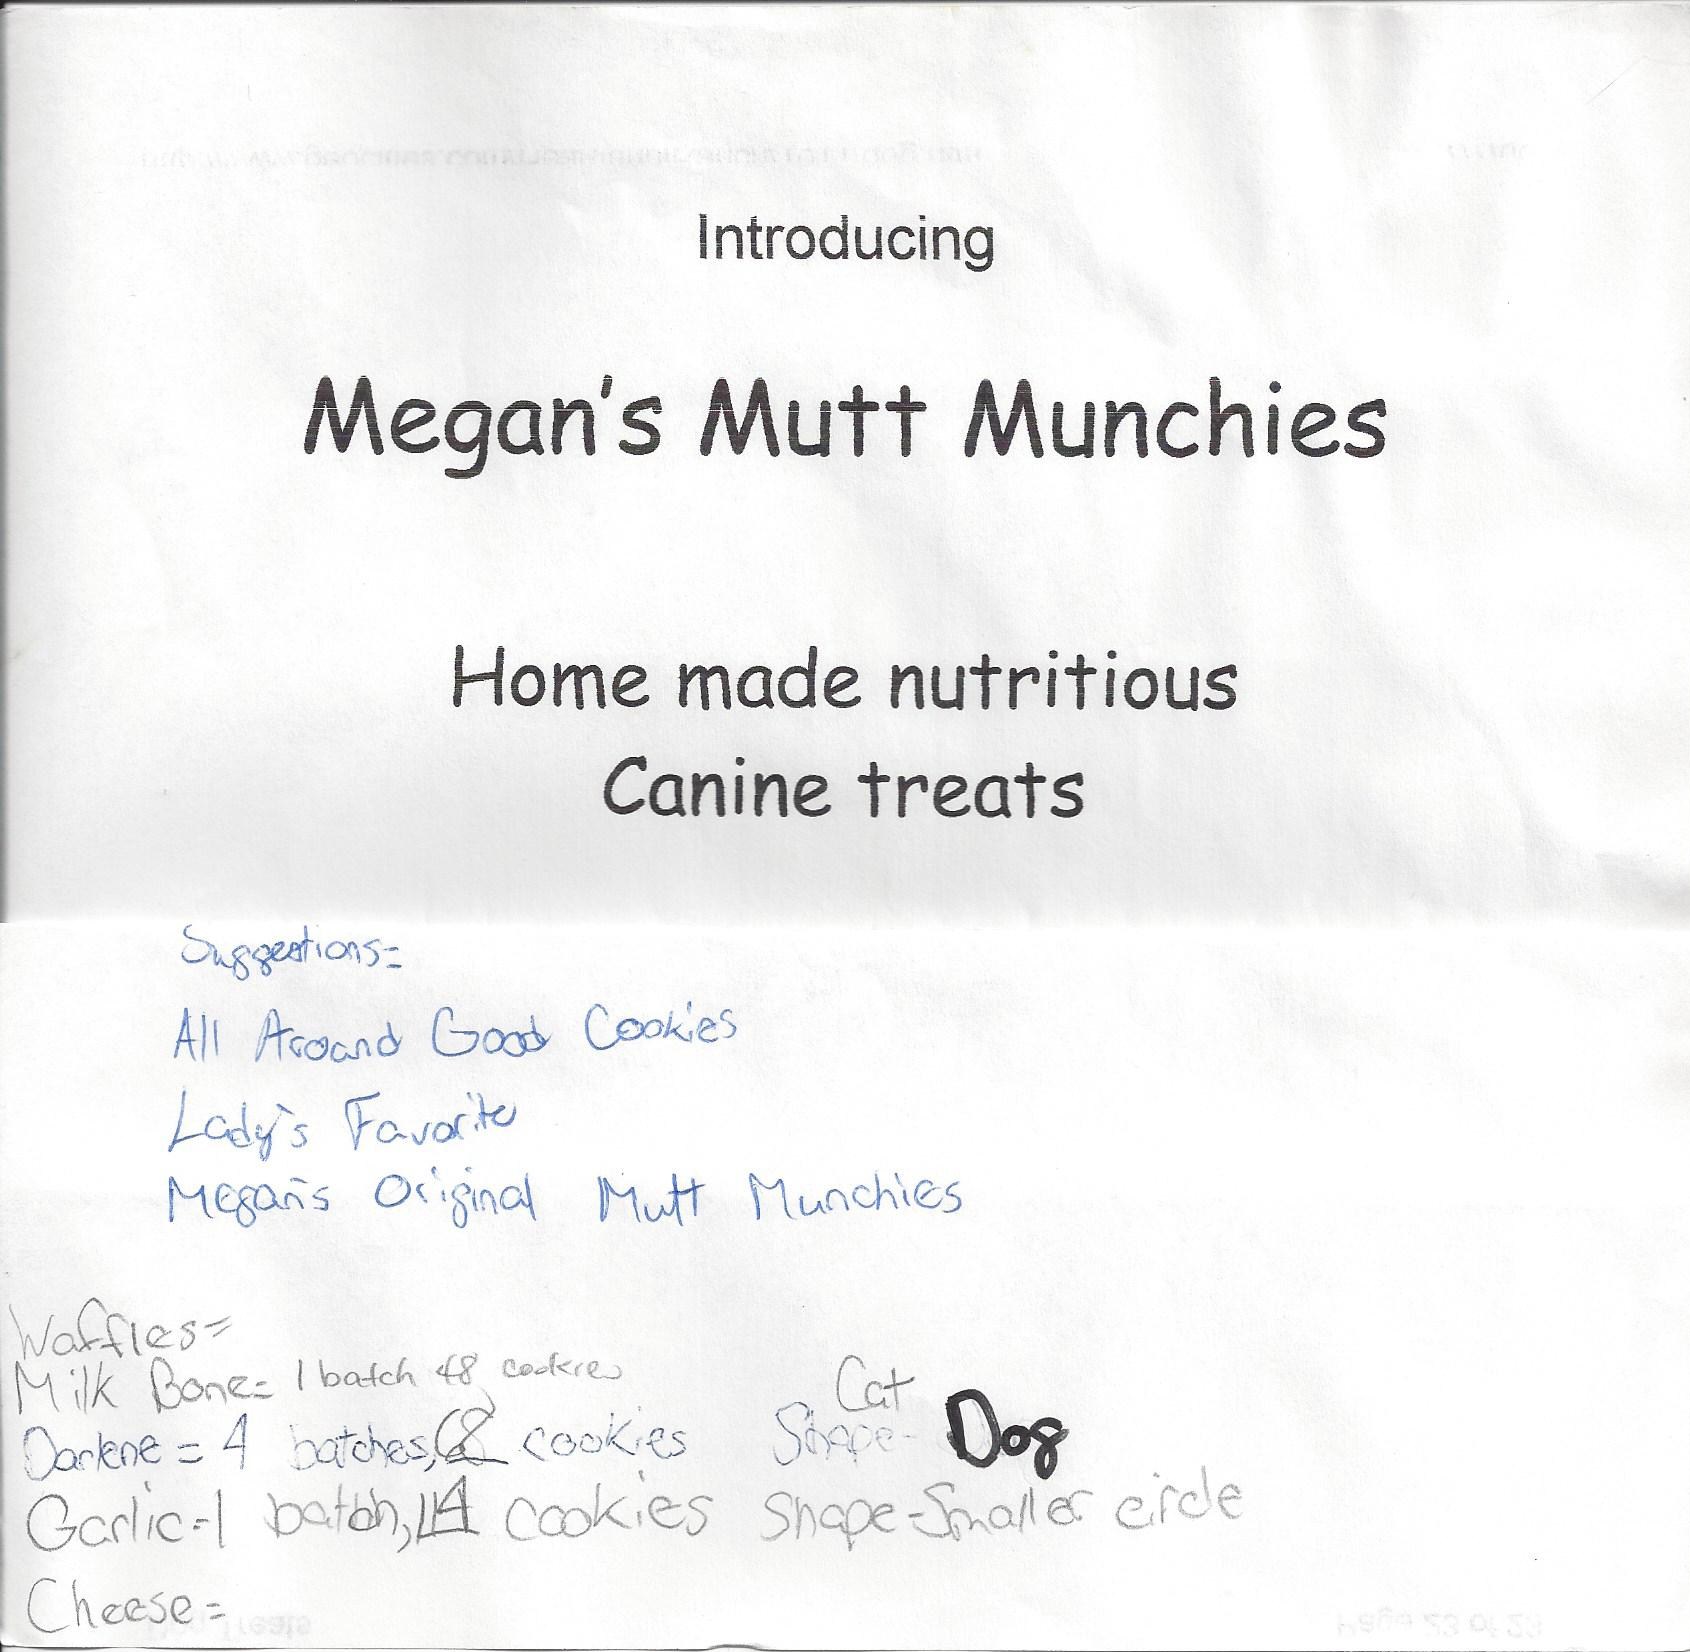 Introducing
Megan's Mutt Munchies
Home made nutritious
Canine treats
Suggestions=
All Around Good Cookies
Lady's Favorite
Megan's Original Mutt Munchies
Waffles=
Milk Bone= 1 batch 48 cookies Cat
Darlene = 4 batches, 68 cookies Shape- Dog
Garlic=1 batch, 114 cookies Shape-Smaller circle
Cheese=
Page 23 of 23